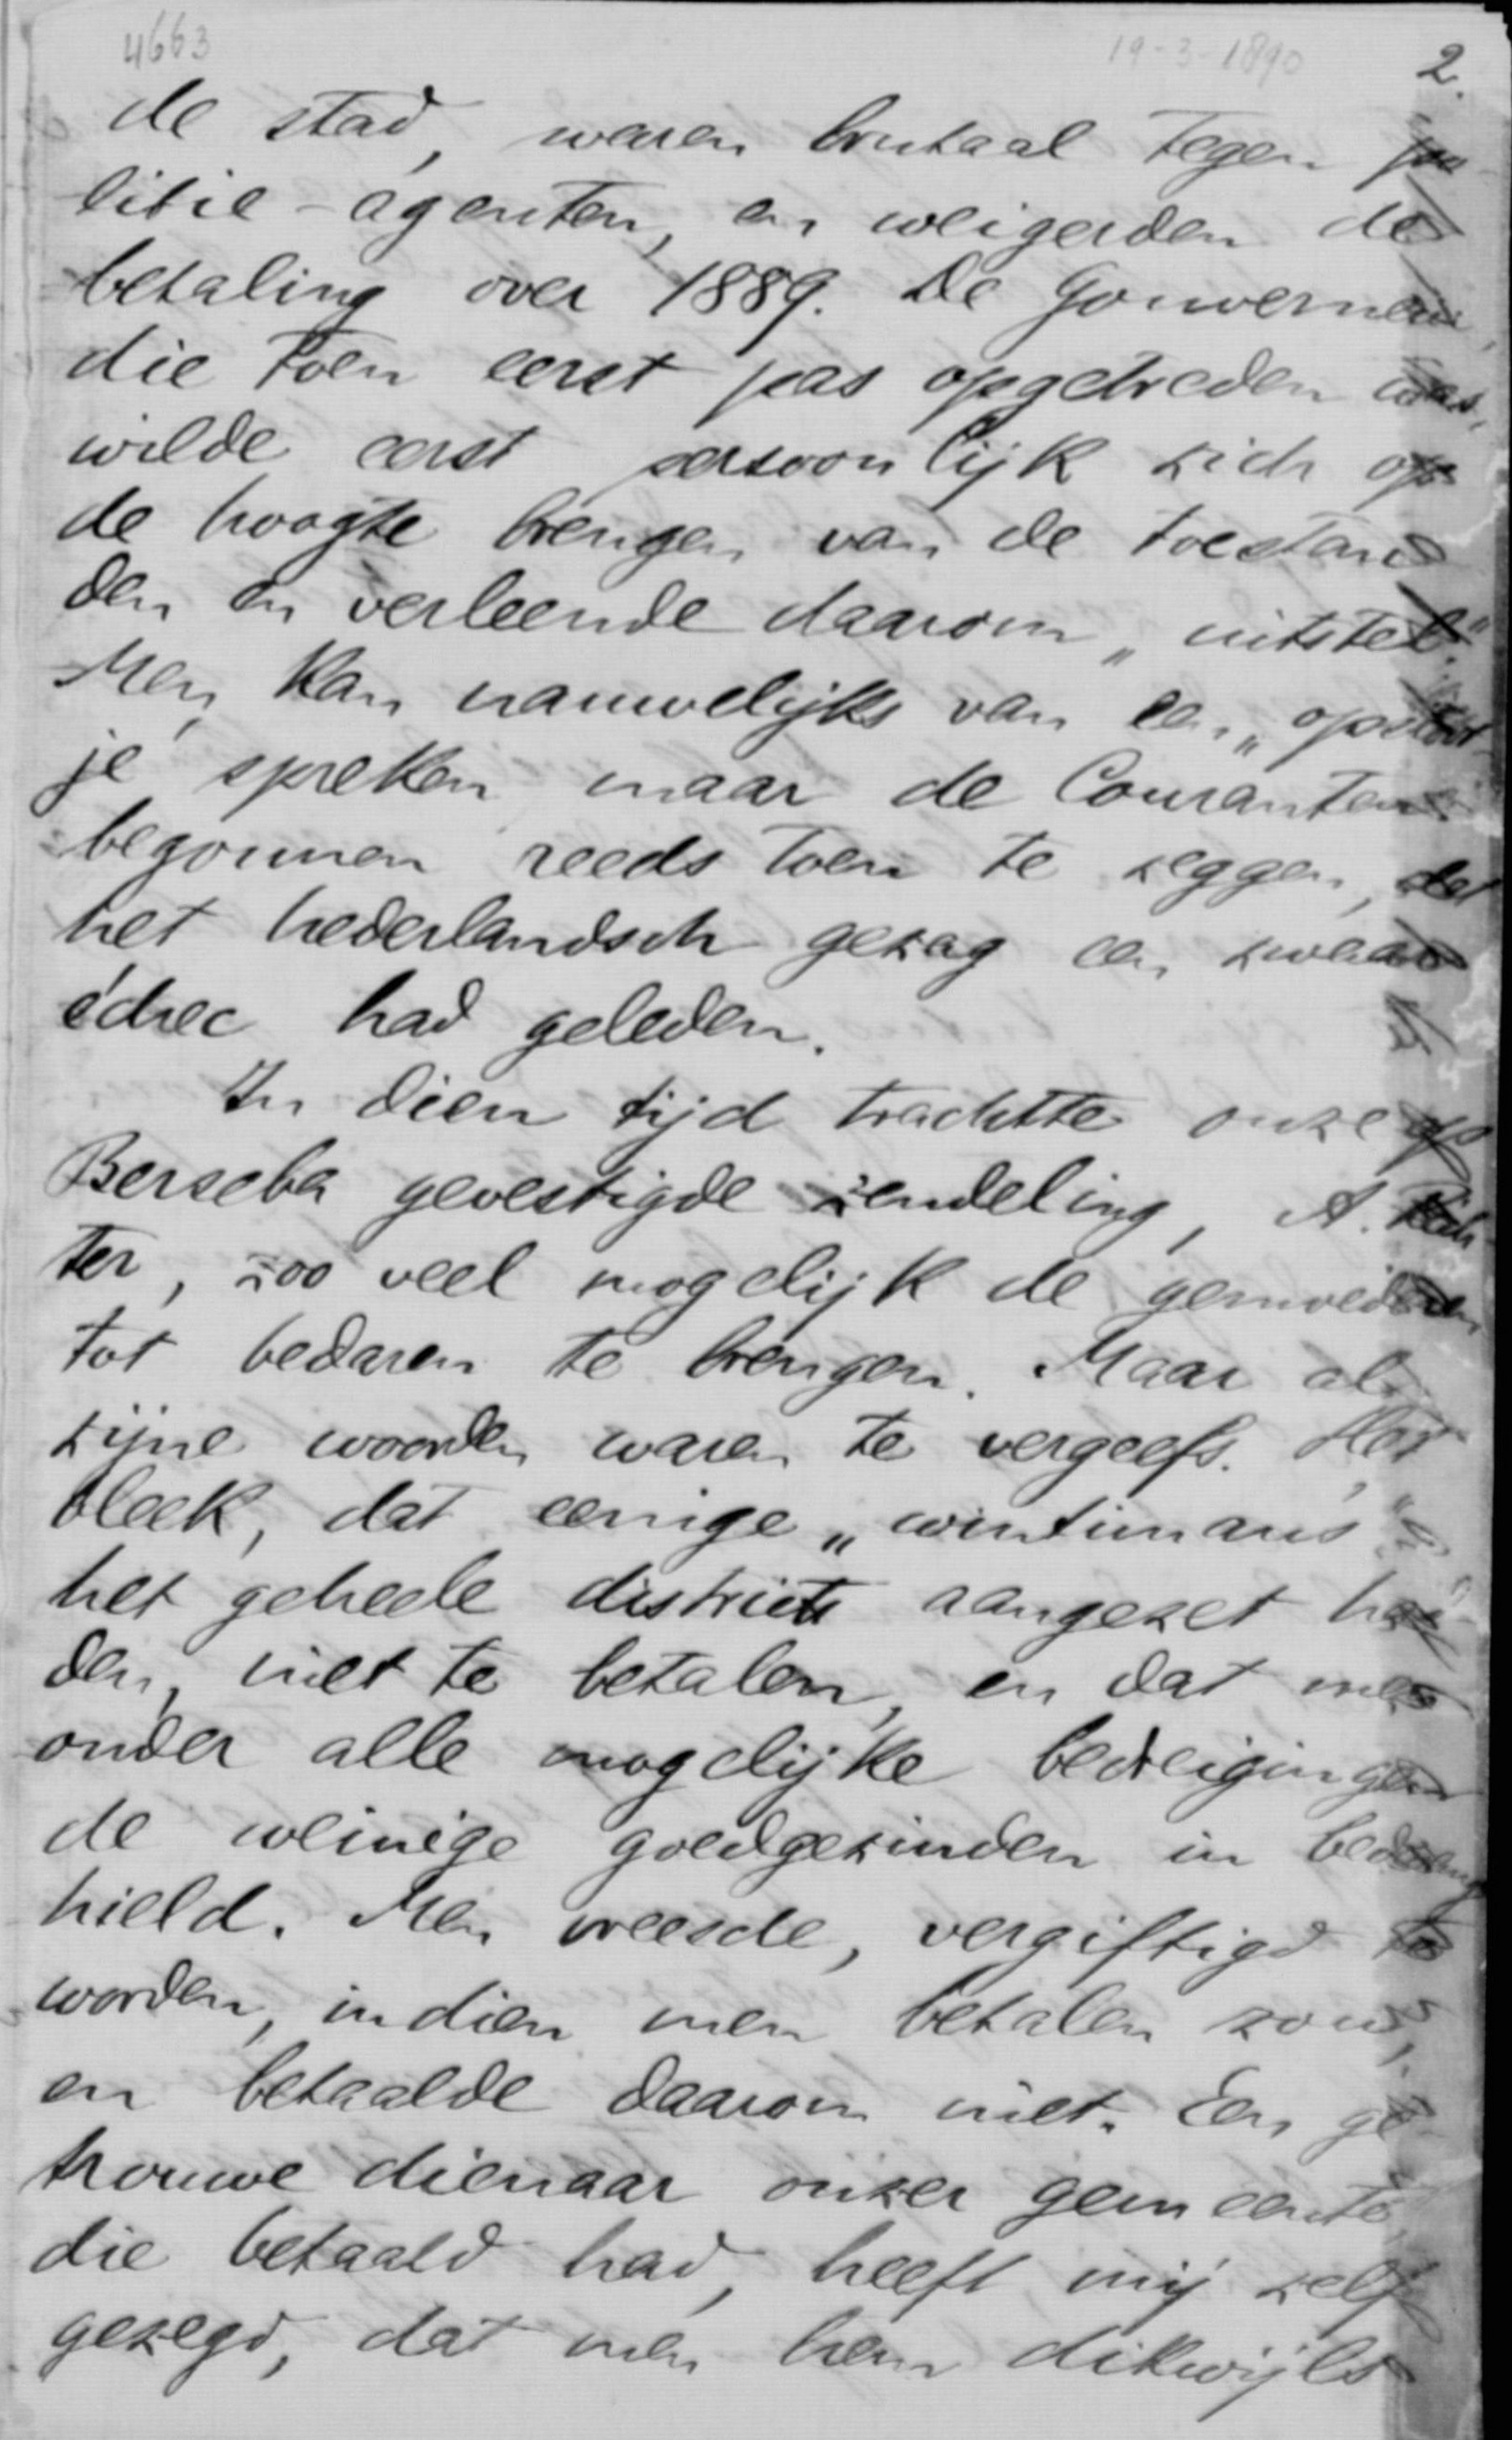 4663 19-3-1890 2.
de stad, waren brutaal tegen po-
litie-agenten, en weigerden de
betaling over 1889. De Gouverneur,
die toen eerst pas opgetreden was,
wilde eerst persoonlijk zich op
de hoogte brengen van de toestan
den en verleende daarom „uitstel."
Men kan nauwelijks van een „opstoot-
je spreken maar de Couranten
begonnen reeds toen te zeggen, dat
het Nederlandsch gezag een zwaar
échec had geleden.
In dien tijd trachtte onze op
Berseba gevestigde zendeling, A. Rich
ter, zoo veel mogelijk de gemoederen
tot bedaren te brengen. Maar al
zijne woorden waren te vergeefs. Het
bleek, dat eenige „wintimans"
het geheele district aangezet had-
den, niet te betalen, en dat men
onder alle mogelijke bedreigingen
de weinige goedgezinden in bedwang
hield. Men vreesde, vergiftigd te
worden, indien men betalen zou,
en betaalde daarom niet. Een ge-
trouwe dienaar onzer gemeente,
die betaald had, heeft mij zelf
gezegd, dat men hem dikwijls